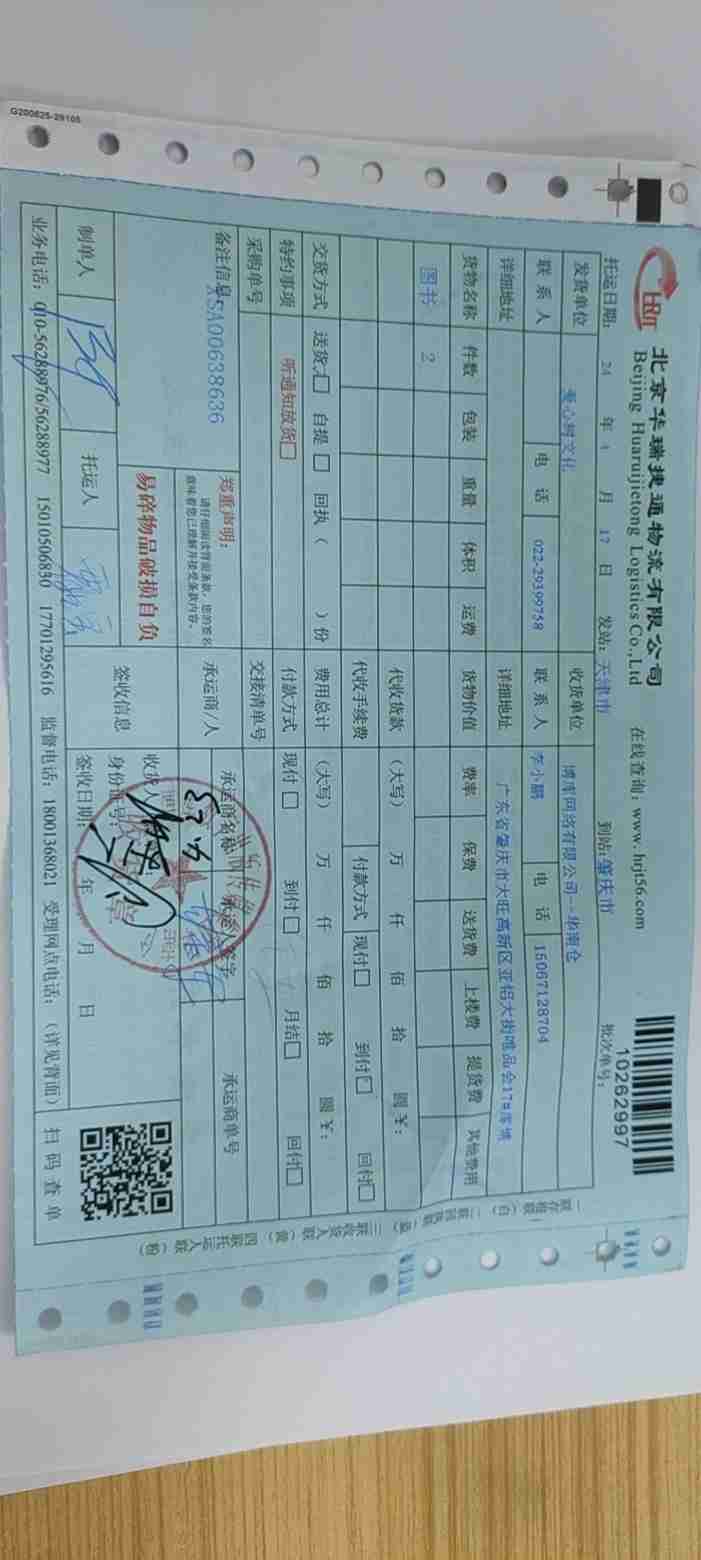 G200625-29105
北京华瑞捷通物流有限公司
Beijing Huaruijietong Logistics Co.,Ltd
在线查询：www.hrjt56.com
10262997
托运日期： 24 年 4 月 17 日 发站：天津市 到站：肇庆市 批次单号：
发货单位 爱心树文化 收货单位 博库网络有限公司--华南仓
联系人 电话 022-29399758 联系人 李小鹏 电话 15067128704
详细地址 详细地址 广东省肇庆市大旺高新区亚铝大街唯品会17#库填
货物名称 件数 包装 重量 体积 运费 货物价值 费率 保费 送货费 上楼费 提货费 其他费用
图书 2
代收货款 （大写） 万 仟 佰 拾 圆 ￥：
代收手续费 付款方式 现付□ 到付□ 回付□
交货方式 送货□ 自提□ 回执（ ）份 费用总计 （大写） 万 仟 佰 拾 圆 ￥：
特约事项 听通知放货□ 付款方式 现付□ 到付□ 月结□ 回付□
采购单号 交接清单号
备注信息： XSA00638636
郑重声明：
请仔细阅读背面条款，您的签名
意味着您已理解并接受条款内容。
易碎物品破损自负
承运商/人 承运商名称 承运人签字 承运商单号
制单人 托运人 签收信息
收货人
身份证号：
签收日期： 年 月 日
扫码查单
业务电话：010-56288976/56288977 15010506830 17701295616 监督电话：18001368021 受理网点电话：（详见背面）
一联存根（白） 二联回执联（蓝） 三联收货人联（黄） 四联托运人联（粉）